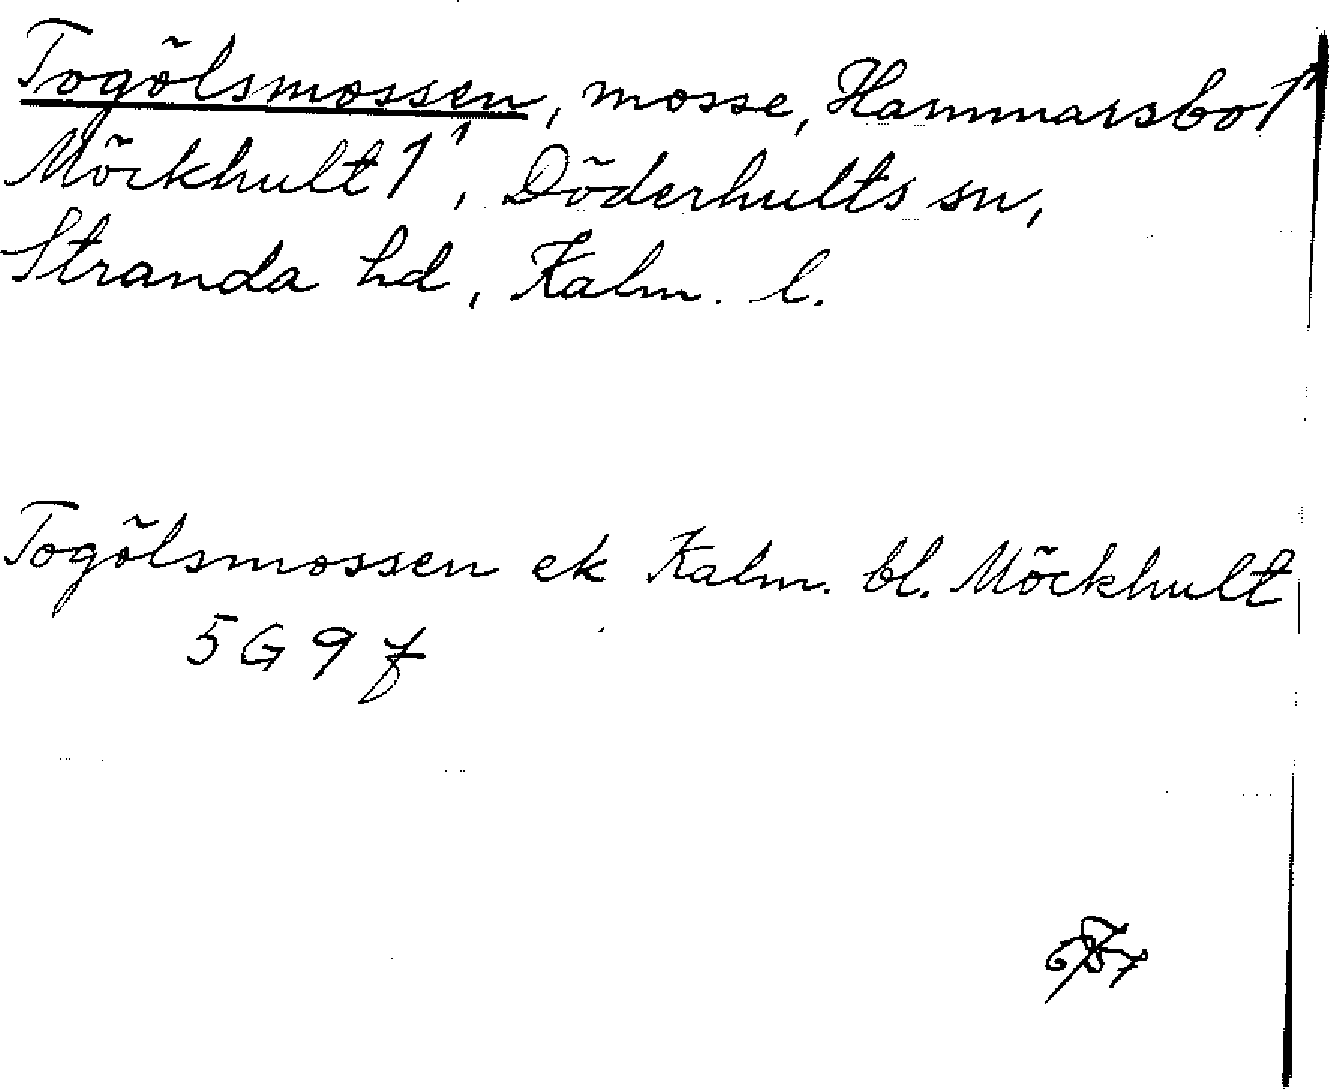 Togölsmossen, mosse, Hammarsbo 1¹
Möckhult 1¹, Döderhults sn,
Stranda hd, Kalm. l.
Togölsmossen ek Kalm. bl. Möckhult
5G9f